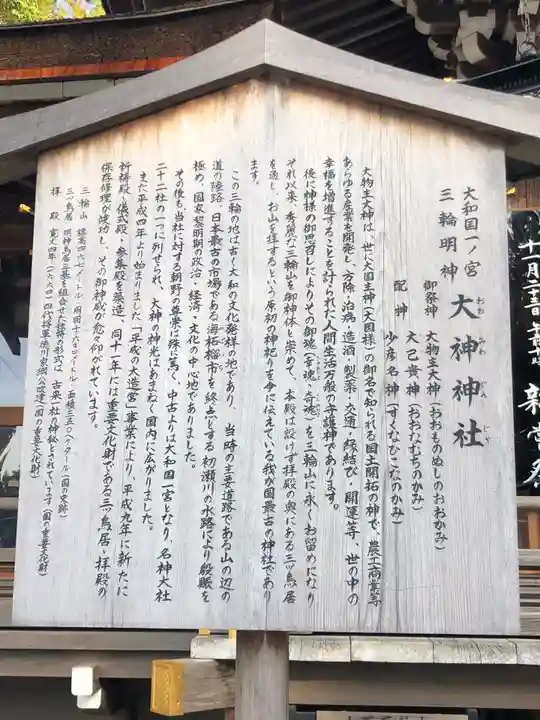 大和国一ノ宮
三輪明神
大神神社
おお みわ じん じゃ
御祭神 大物主大神(おおものぬしのおおかみ)
配神 大己貴神(おおなむちのかみ)
少彦名神(すくなひこなのかみ)
大物主大神は、世に大国主神(大国様)の御名で知られる国土開拓の神で、農工商業等
あらゆる産業を開発し、方除・治病・造酒・製薬・交通・縁結び・開運等、世の中の
幸福を増進することを計られた人間生活万般の守護神であります。
後に神様の御思召しによりその御魂(幸魂、奇魂)を三輪山に永くお留めになり
それ以来、秀麗な三輪山を御神体と崇めて、本殿は設けず拝殿の奥にある三ツ鳥居
を通し、お山を拝するという原初の神祀りを今に伝えている我が国最古の神社であり
ます。
この三輪の地は古く大和の文化発祥の地であり、当時の主要道路である山の辺の
道の陸路、日本最古の市場である海柘榴市を終点とする初瀬川の水路により殷賑を
極め、国家黎明期の政治・経済・文化の中心地でありました。
その後も、当社に対する朝野の尊崇は殊に篤く、中古よりは大和国一宮となり、名神大社
二十二社の一つに列せられ、大神の神光はあまねく国内に広がりました。
また平成四年より始まりました「平成の大造営」事業により、平成九年に新たに
祈祷殿・儀式殿・参集殿を築造、同十一年には重要文化財である三ツ鳥居・拝殿の
保存修理が竣功し、その御神威が愈々仰がれています。
三輪山 標高四六七メートル・周囲十六キロメートル・面積三五〇ヘクタール(国の史跡)
三ツ鳥居 明神鳥居三基を組合せた独特の形式は、古来一社の神秘とされています(国の重要文化財)
拝殿 寛文四年(一六六四)四代将軍徳川家綱公造進(国の重要文化財)